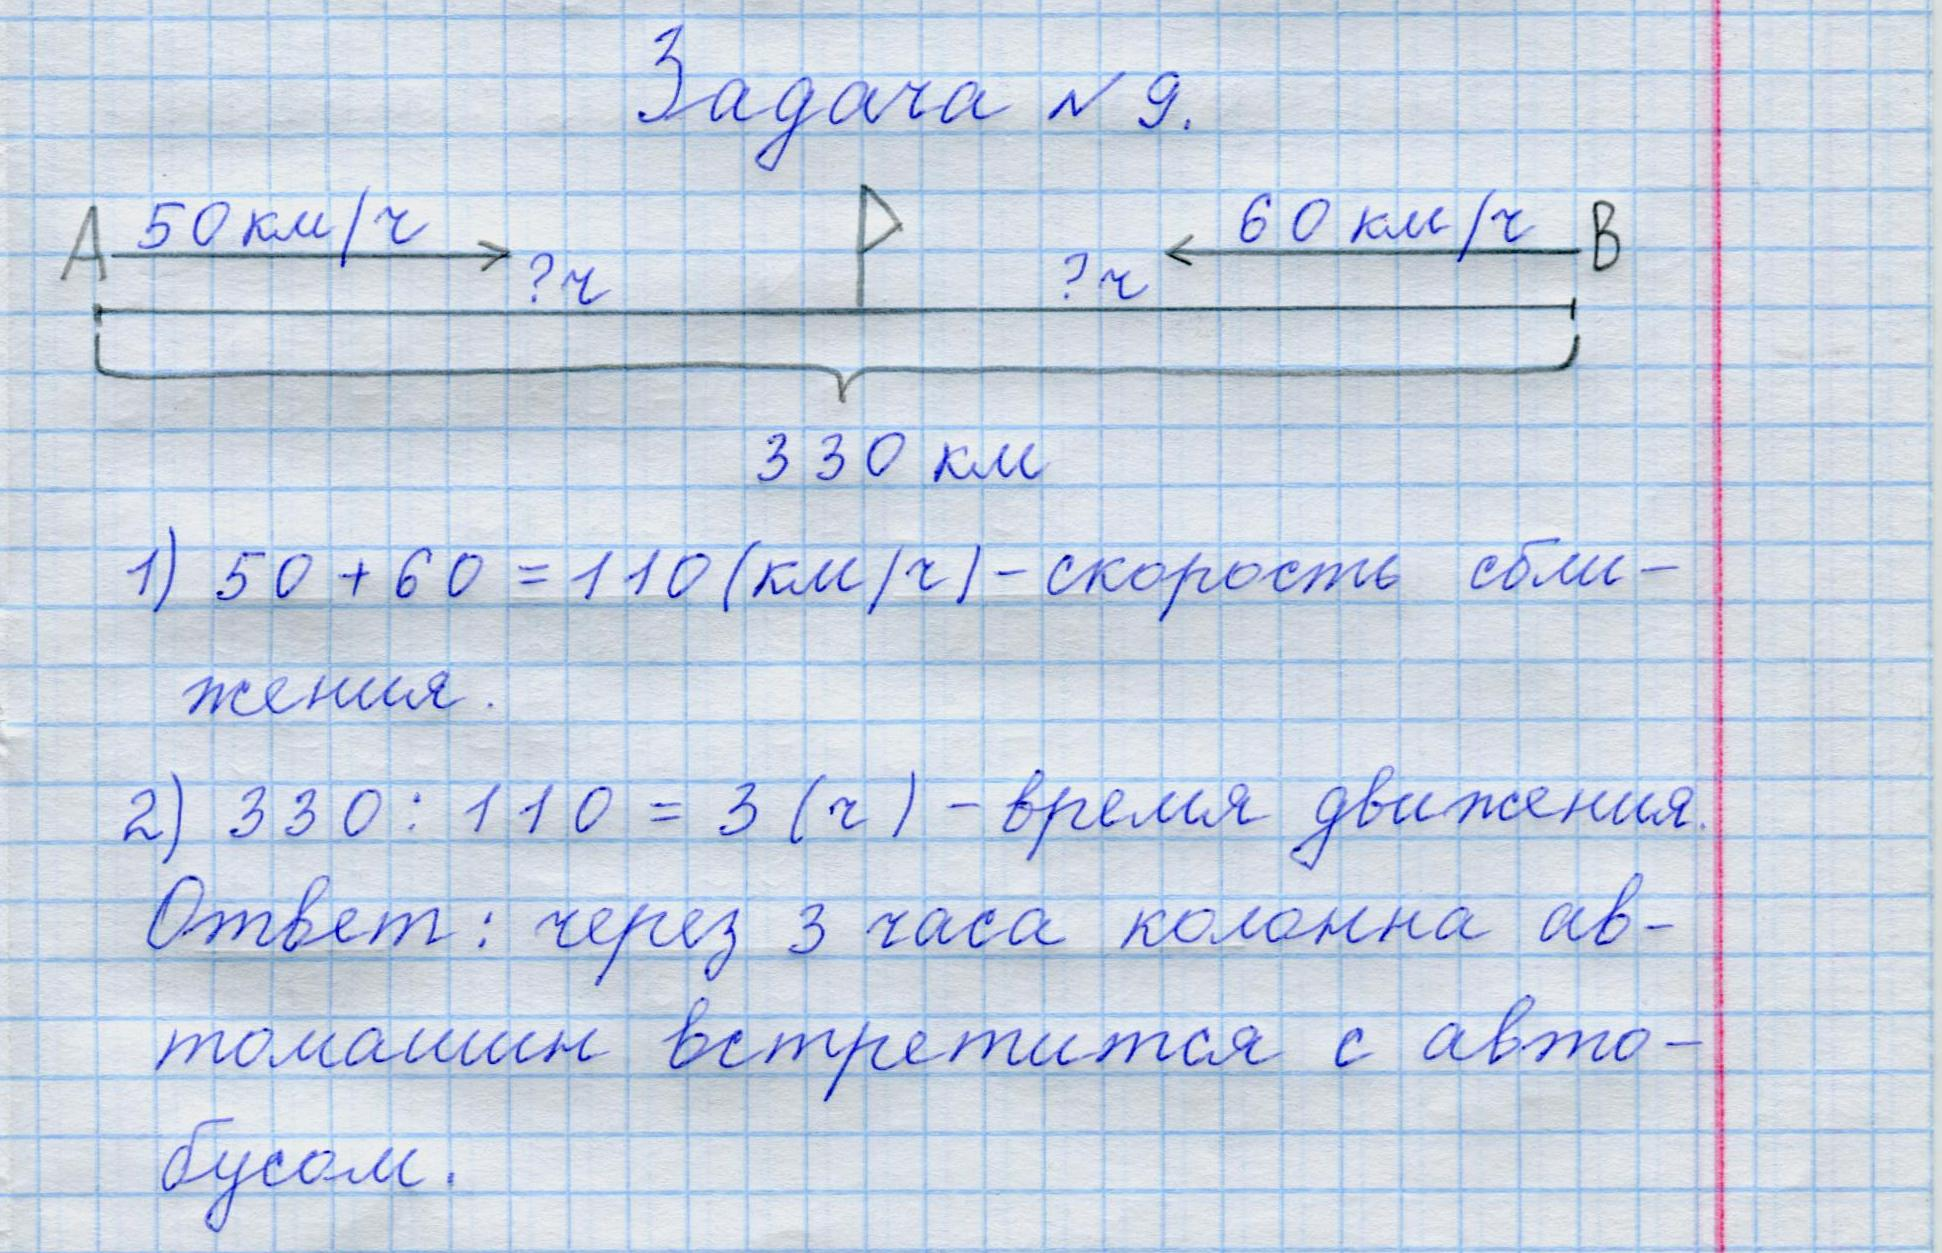 Задача № 9.
А 50 км/ч ?ч ?ч 60 км/ч В
330 км
1) 50 + 60 = 110 (км/ч) – скорость сбли-
жения.
2) 330 : 110 = 3 (ч) – время движения.
Ответ: через 3 часа колонна ав-
томашин встретится с авто-
бусом.